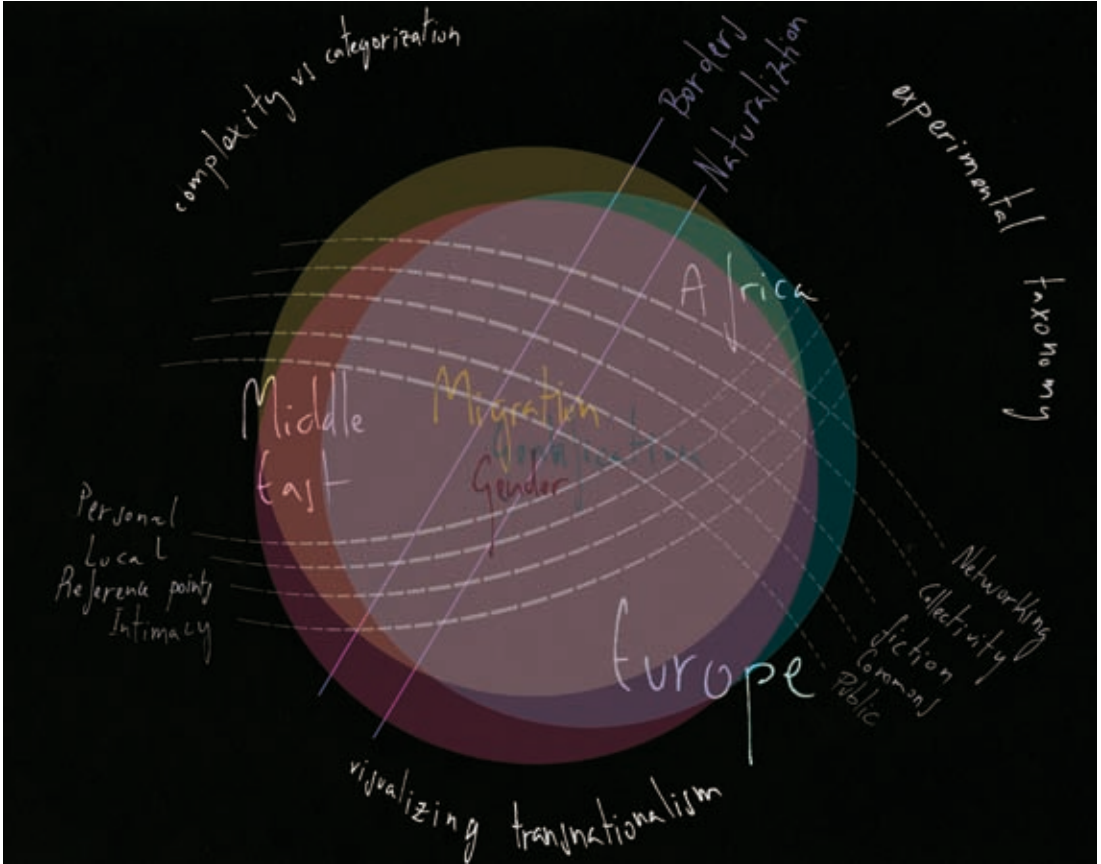 complexity vs categorization
Borders
Naturalization
experimental
taxonomy
Africa
Middle
East
Migration
Gender
Personal
Local
Reference points
Intimacy
Networking
Collectivity
fiction
Commons
Public
Europe
visualizing transnationalism